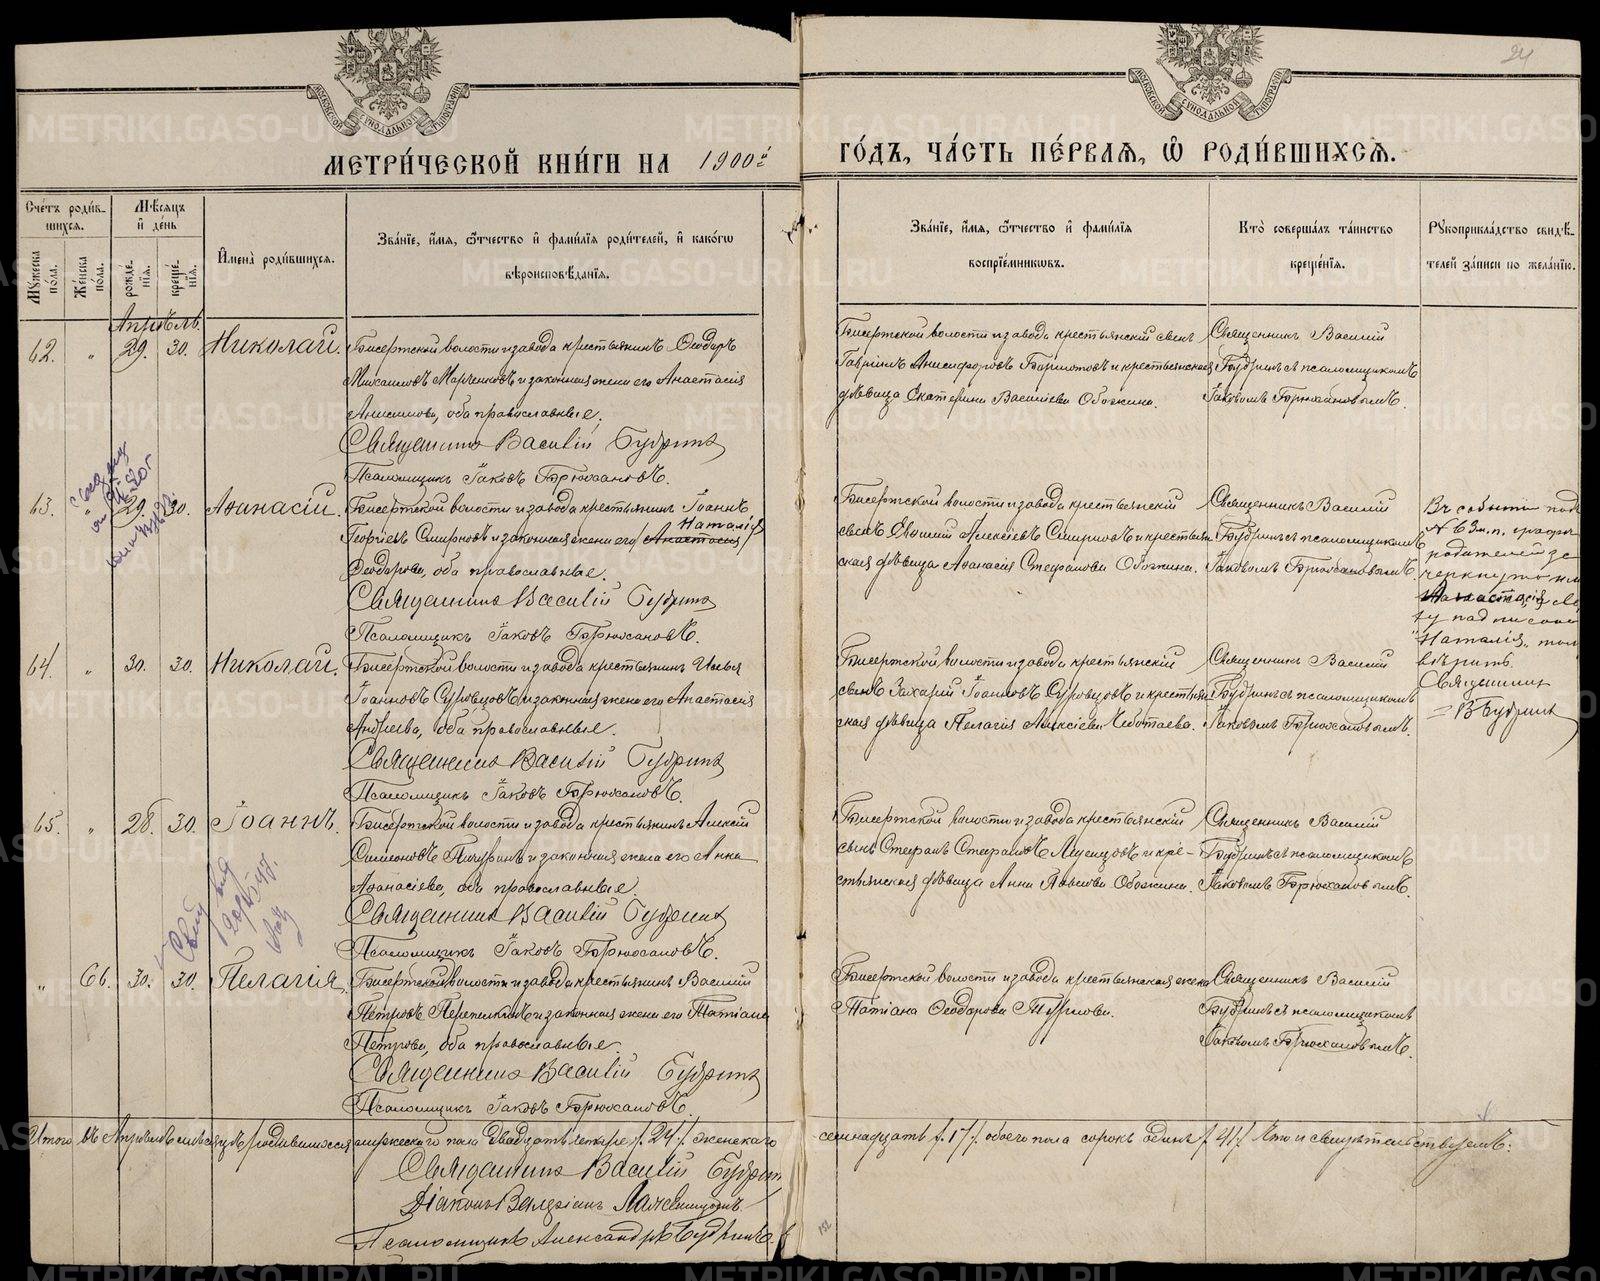 МЕТРИ́ЧЕСКОЙ КНИ́ГИ НА 1900й
ГО́ДЪ, ЧА́СТЬ ПЕ́РВАЯ, Ѡ҆ РОДИ́ВШИХСЯ.
24
Сче́тъ роди́в-
шихся.
Мꙋ́жеска по́ла.
Же́нска по́ла.
Мѣ́сяцъ
и҆ де́нь
рожде́-нїя.
креще́-нїя.
И҆мена̀ роди́вшихся.
Зва́нїе, и҆́мя, ѻ҆́тчество и҆ фами́лїя роди́телей, и҆ како́гѡ
вѣроисповѣ́данїя.
Зва́нїе, и҆́мя, ѻ҆́тчество и҆ фами́лїя
воспрїе́мникѡвъ.
Кто̀ соверша́лъ та́инство
креще́нїя.
Рꙋкоприкла́дство свидѣ́-
телей за́писи по жела́нїю.
Апрѣль.
62. " 29. 30. Николай.
Бисертской волости и завода крестьянинъ Ѳеодоръ
Михаиловъ Марченковъ и законная жена его Анастасія
Анисимова, оба православные.
Священникъ Василій Будринъ
Псаломщикъ Іаковъ Брюхановъ.
Бисертской волости и завода крестьянскій сынъ
Гавріилъ Анисифоровъ и крестьянская
дѣвица Екатерина Василіева Обожина.
Священникъ Василій
Будринъ съ псаломщикомъ
Іаковомъ Брюхановымъ.
63. " 29. 30. Аѳанасій.
Бисертской волости и завода крестьянинъ Іоаннъ
Наталія
Георгіевъ Смирновъ и законная жена его Анастасія
Ѳеодорова, оба православные.
Священникъ Василій Будринъ
Псаломщикъ Іаковъ Брюхановъ.
Бисертской волости и завода крестьянскій
сынъ Евѳимій Алексіевъ Смирновъ и крестьян
ская дѣвица Аѳанасія Стефанова Обожина.
Священникъ Василій
Будринъ съ псаломщикомъ
Іаковомъ Брюхановымъ.
Въ событіи подъ
№ 63 м.п. графы
родителей за
черкнутому
Анастасія
ту надписанн
"Наталія"
вѣрить.
Священникъ
В Будринъ
64. " 30. 30. Николай.
Бисертской волости и завода крестьянинъ Илья
Іоанновъ Суровцовъ и законная жена его Анастасія
Андреева, оба православные.
Священникъ Василій Будринъ
Псаломщикъ Іаковъ Брюхановъ.
Бисертской волости и завода крестьянскій
сынъ Захарій Іоанновъ Суровцовъ и крестьян
ская дѣвица Пелагія Алексіева Чеботаева.
Священникъ Василій
Будринъ съ псаломщикомъ
Іаковомъ Брюхановымъ.
65. " 28. 30. Іоаннъ.
Бисертской волости и завода крестьянинъ Алексій
Симеоновъ и законная жена его Анна
Аѳанасіева, оба православные.
Священникъ Василій Будринъ
Псаломщикъ Іаковъ Брюхановъ.
Бисертской волости и завода крестьянскій
сынъ Стефанъ Стефановъ и кре-
стьянская дѣвица Анна Павлова Обожина.
Священникъ Василій
Будринъ съ псаломщикомъ
Іаковомъ Брюхановымъ.
" 66. 30. 30. Пелагія.
Бисертской волости и завода крестьянинъ Василій
Петровъ Перепелкинъ и законная жена его Татіана
Петрова, оба православные.
Священникъ Василій Будринъ
Псаломщикъ Іаковъ Брюхановъ.
Бисертской волости и завода крестьянская жена
Татіана Ѳеодорова
Священникъ Василій
Будринъ съ псаломщикомъ
Іаковомъ Брюхановымъ.
Итого въ Апрѣлѣ мѣсяцѣ родившихся мужескаго пола двадцать четыре /24/ женскаго
семнадцать /17/ обоего пола сорокъ одинъ /41/. Что и свидѣтельствуемъ:
Священникъ Василій Будринъ
Діаконъ Валеріанъ
Псаломщикъ Александръ Будринъ.
METRIKI.GASO-URAL.RU